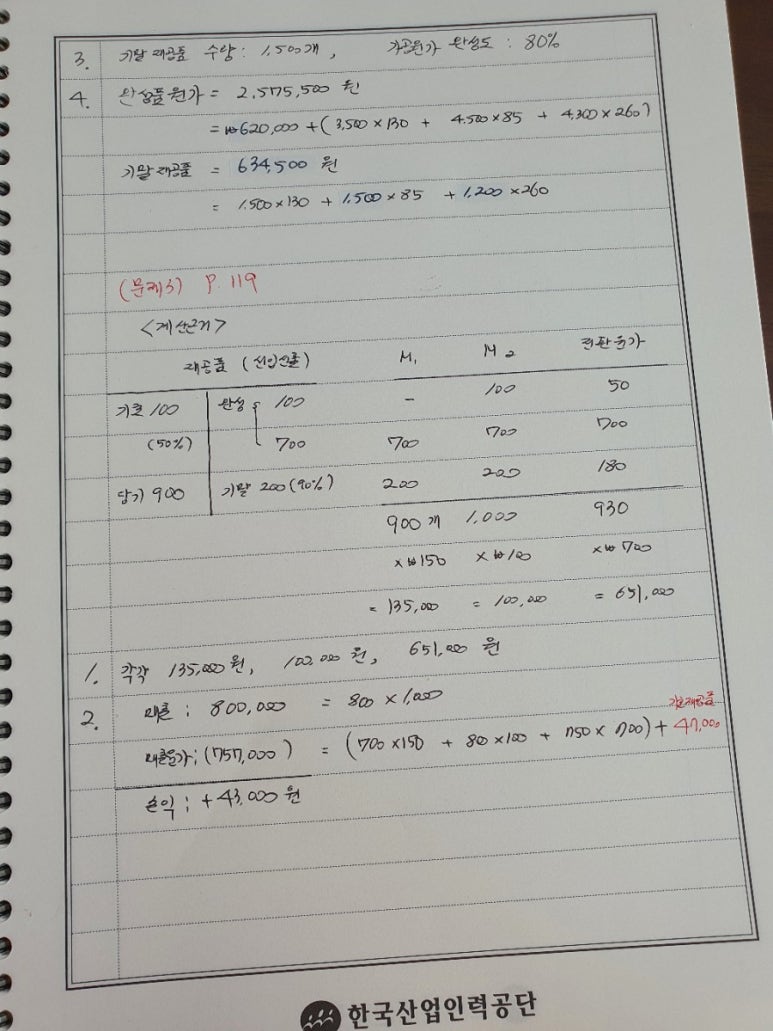 3. 기말 재공품 수량 : 1,500개, 가공원가 완성도 : 80%
4. 완성품원가 = 2,575,500 원
= ₩620,000 + (3,500 × 130 + 4,500 × 85 + 4,300 × 260)
기말 재공품 = 634,500 원
= 1,500 × 130 + 1,500 × 85 + 1,200 × 260
(문제3) P. 119
<계산근거>
재공품 (선입선출) M₁ M₂ 전환원가
기초 100 완성 100 - 100 50
(50%) 700 700 700 700
당기 900 기말 200 (90%) 200 200 180
900개 1,000 930
×₩150 ×₩100 ×₩700
= 135,000 = 100,000 = 651,000
1. 각각 135,000원, 100,000원, 651,000원
2. 매출 : 800,000 = 800 × 1,000
기초재공품
매출원가 : (757,000) = (700 × 150 + 800 × 100 + 750 × 700) + 47,000
손익 : + 43,000 원
한국산업인력공단